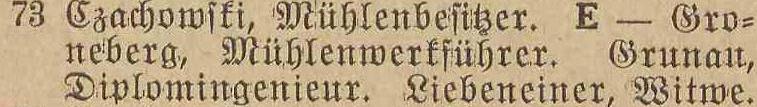 73 Czachowski, Mühlenbesitzer. E — Gro=
neberg, Mühlenwerkführer. Grunau,
Diplomingenieur. Liebeneiner, Witwe.